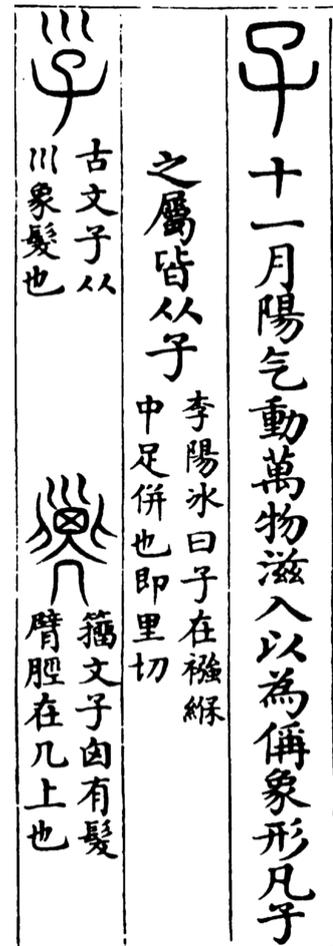 子 十一月陽气動萬物滋入以為偁象形凡子
之屬皆从子 李陽冰曰子在襁緥
中足併也即里切
𡿹 古文子从
巛象髮也
𢀇 籒文子囟有髮
臂脛在几上也